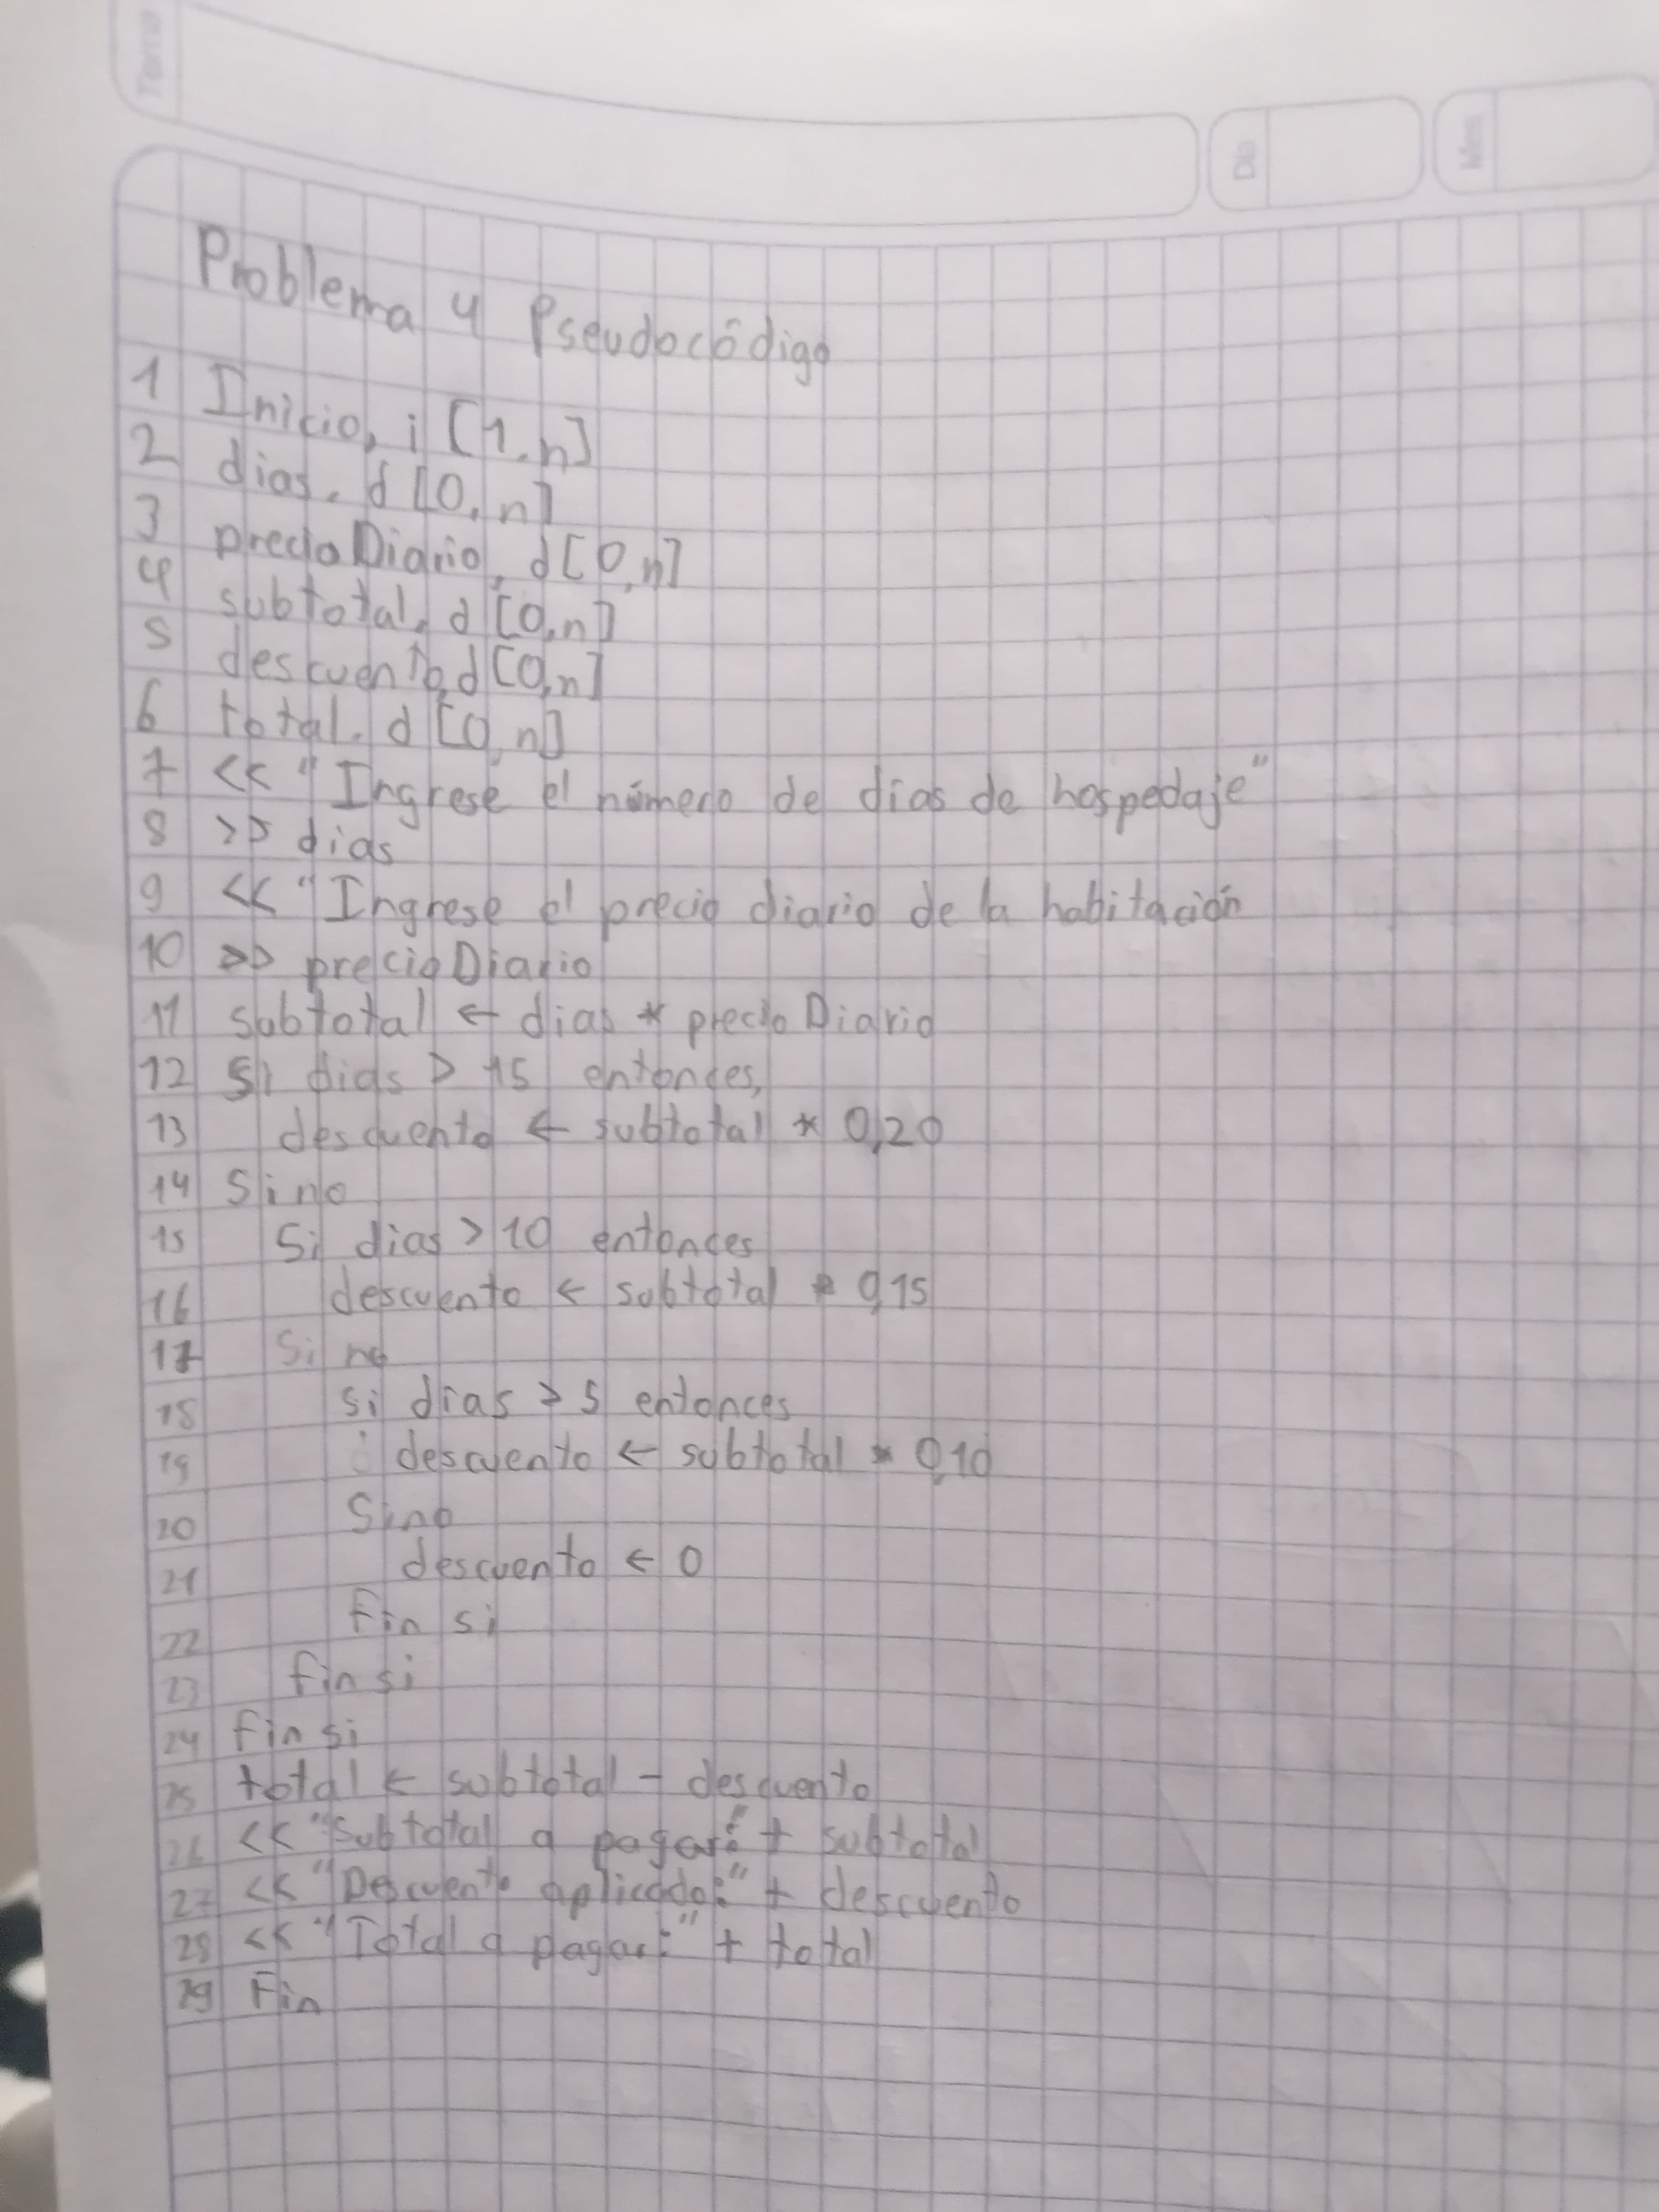 Tema
Día
Mes
Problema 4 Pseudocódigo
1 Inicio, i [1,n]
2 dias, d [0,n]
3 precioDiario, d[0,n]
4 subtotal, d [0,n]
5 descuento,d[0,n]
6 total, d [0,n]
7 << "Ingrese el número de días de hospedaje"
8 >> dias
9 << "Ingrese el precio diario de la habitación
10 >> precioDiario
11 subtotal ← dias * precioDiario
12 Si dias > 15 entonces,
13 descuento ← subtotal * 0,20
14 Sino
15 Si dias > 10 entonces
16 descuento ← subtotal * 0,15
17 Sino
18 si dias > 5 entonces
19 descuento ← subtotal * 0,10
20 Sino
21 descuento ← 0
22 Fin si
23 fin si
24 fin si
25 total ← subtotal - descuento
26 << "Subtotal a pagar:" + subtotal
27 << "Descuento aplicado:" + descuento
28 << "Total a pagar:" + total
29 Fin